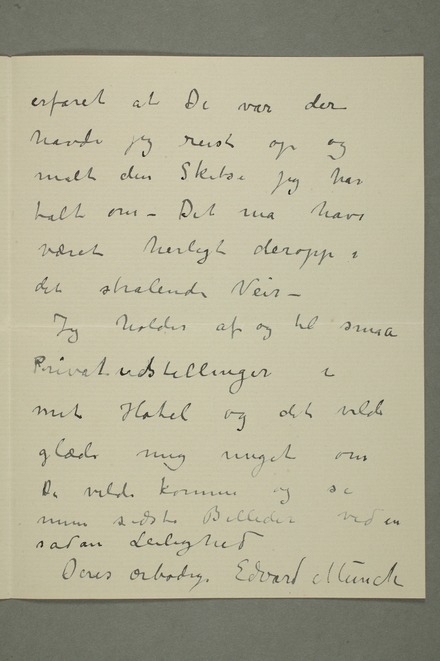 erfaret at De var der
havde jeg reist op og
malt den Skitse jeg har
talt om – Det må have
været herligt deroppe i
det stralende Veir –
Jeg holder af og til smaa
Privatudstillinger i
mit Hotel og det vilde
glæde mig meget om
De vilde komme og se
mine sidste Billeder ved en
sadan Leilighed
Deres ærbødig. Edvard Munch